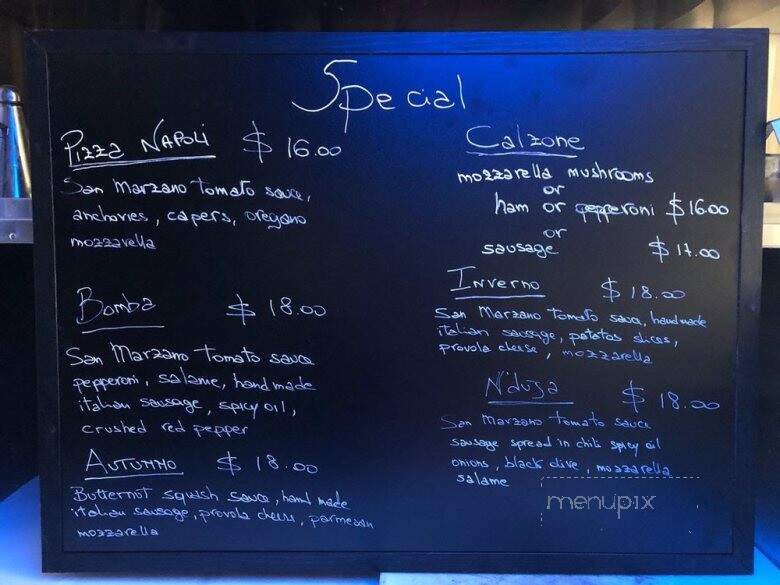 Special
Pizza NAPOLI $ 16.00
San Marzano tomato sauce,
anchovies, capers, oregano
mozzarella
Bomba $ 18.00
San Marzano Tomato sauce
pepperoni, salame, hand made
italian sausage, spicy oil,
crushed red pepper
AUTUMMO $ 18.00
Butternot squish sauce, hand made
italian sausage, provola cheese, parmesan
mozzarella
Calzone
mozzarella mushrooms
or
ham or pepperoni $16.00
or
sausage $ 17.00
INVERNO $ 18.00
San Marzano Tomato sauce, handmade
italian sausage, potatos slices,
provola cheese, mozzarella
N'DUJA $ 18.00
San Marzano tomato sauce
sausage spread in chili spicy oil
onions, black olive, mozzarella
salame
menupix